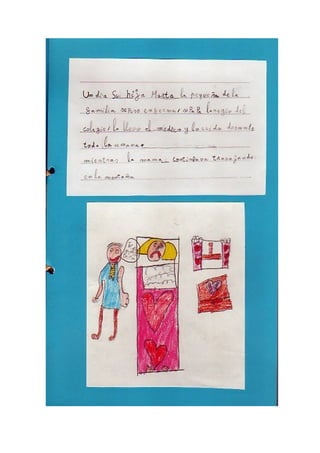 Un día Su hija Marta la pequeña de la
familia enfermar
colegio la llevo al médico y la cuido durante
toda la semana
mientras la mama continuava trabajando
en la montaña